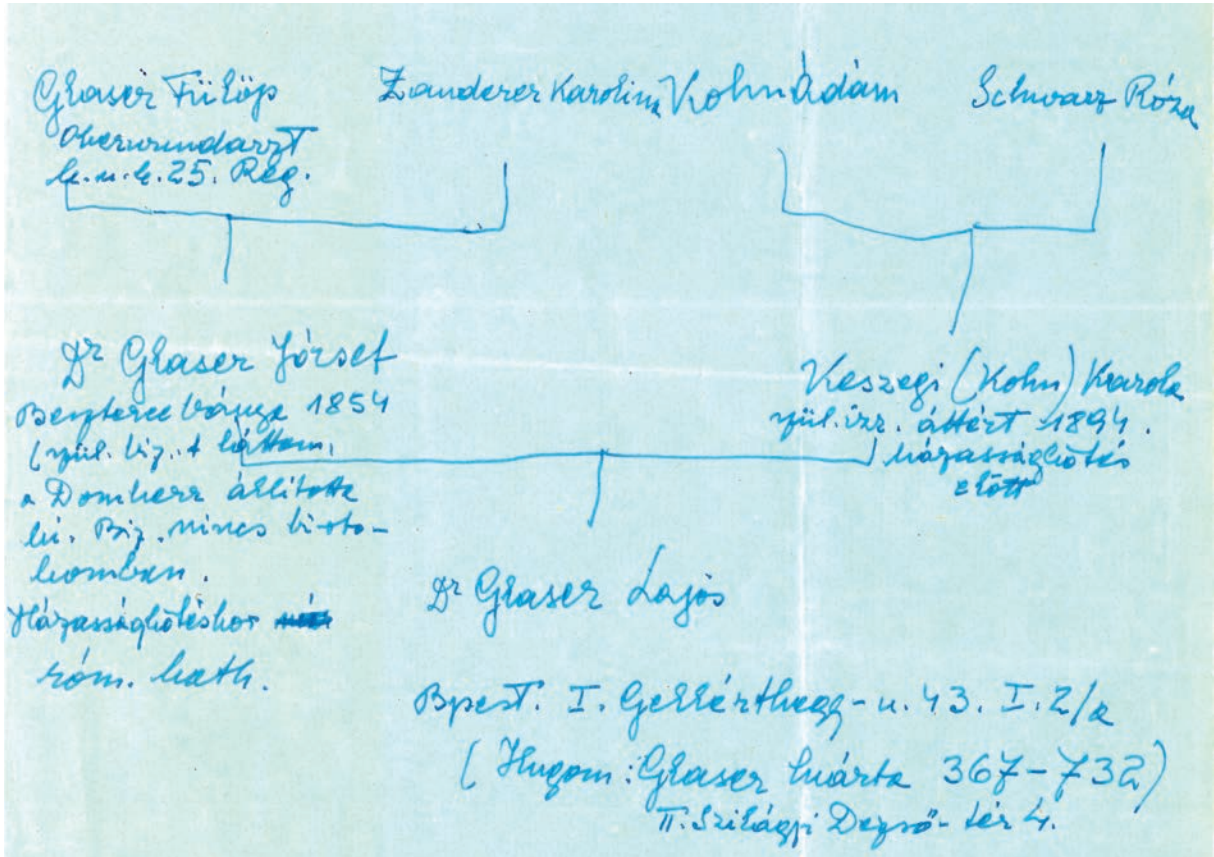 Glaser Fülöp
Oberwundarzt
k.u.k. 25. Reg.
Zanderer Karolina
Kohn Ádám
Schwarz Róza
Dr Glaser József
Beszterce bánya 1854
(szül. biz.-t láttam,
a Domherr állította
ki. Biz. nincs birto-
komban.
Házasságkötéskor
róm. kath.
Keszegi (Kohn) Karola
szül. izr. áttért 1894.
házasságkötés
előtt
Dr Glaser Lajos
Bpest. I. Gellérthegy-u. 43. I. 2/a
(Hugom: Glaser Márta 367-732)
II. Szilágyi Dezső-tér 4.